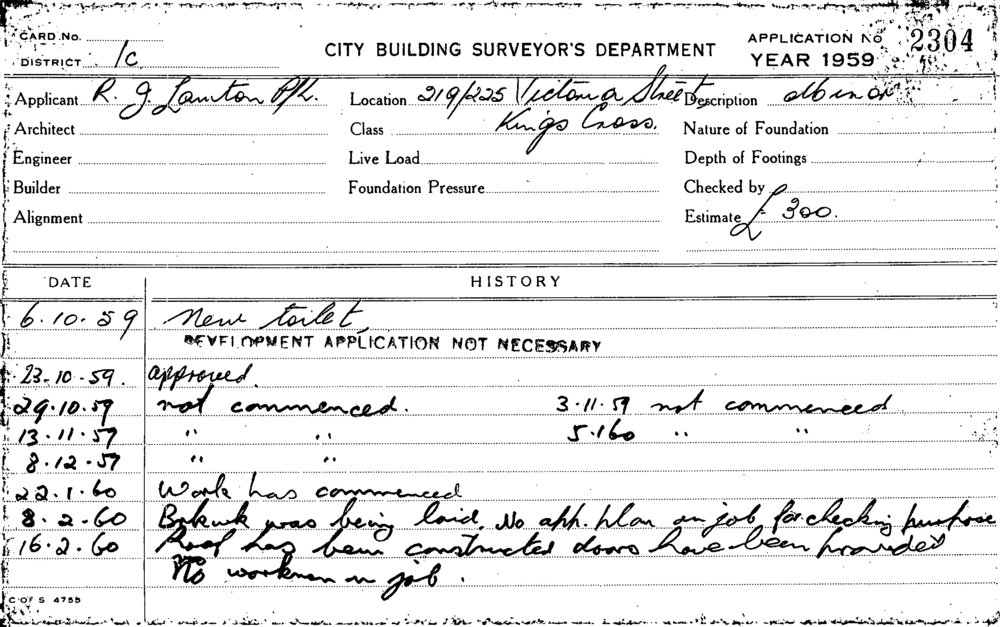 CARD No.
DISTRICT 1c
CITY BUILDING SURVEYOR'S DEPARTMENT
APPLICATION No 2304
YEAR 1959
Applicant R. J. Lawton P/L. Location 219/225 Victoria Street Description
Architect Class Kings Cross. Nature of Foundation
Engineer Live Load Depth of Footings
Builder Foundation Pressure Checked by
Alignment Estimate £ 300.
DATE HISTORY
6.10.59 New toilet
DEVELOPMENT APPLICATION NOT NECESSARY
23.10.59. approved.
29.10.59 not commenced. 3.11.59 not commenced
13.11.59 " " 5.1.60 " "
8.12.59 " "
22.1.60 Work has commenced
8.2.60 Bkwk was being laid. No app. plan on job for checking purpose
16.2.60 Roof has been constructed doors have been provided
No workmen on job.
C OF S 4755